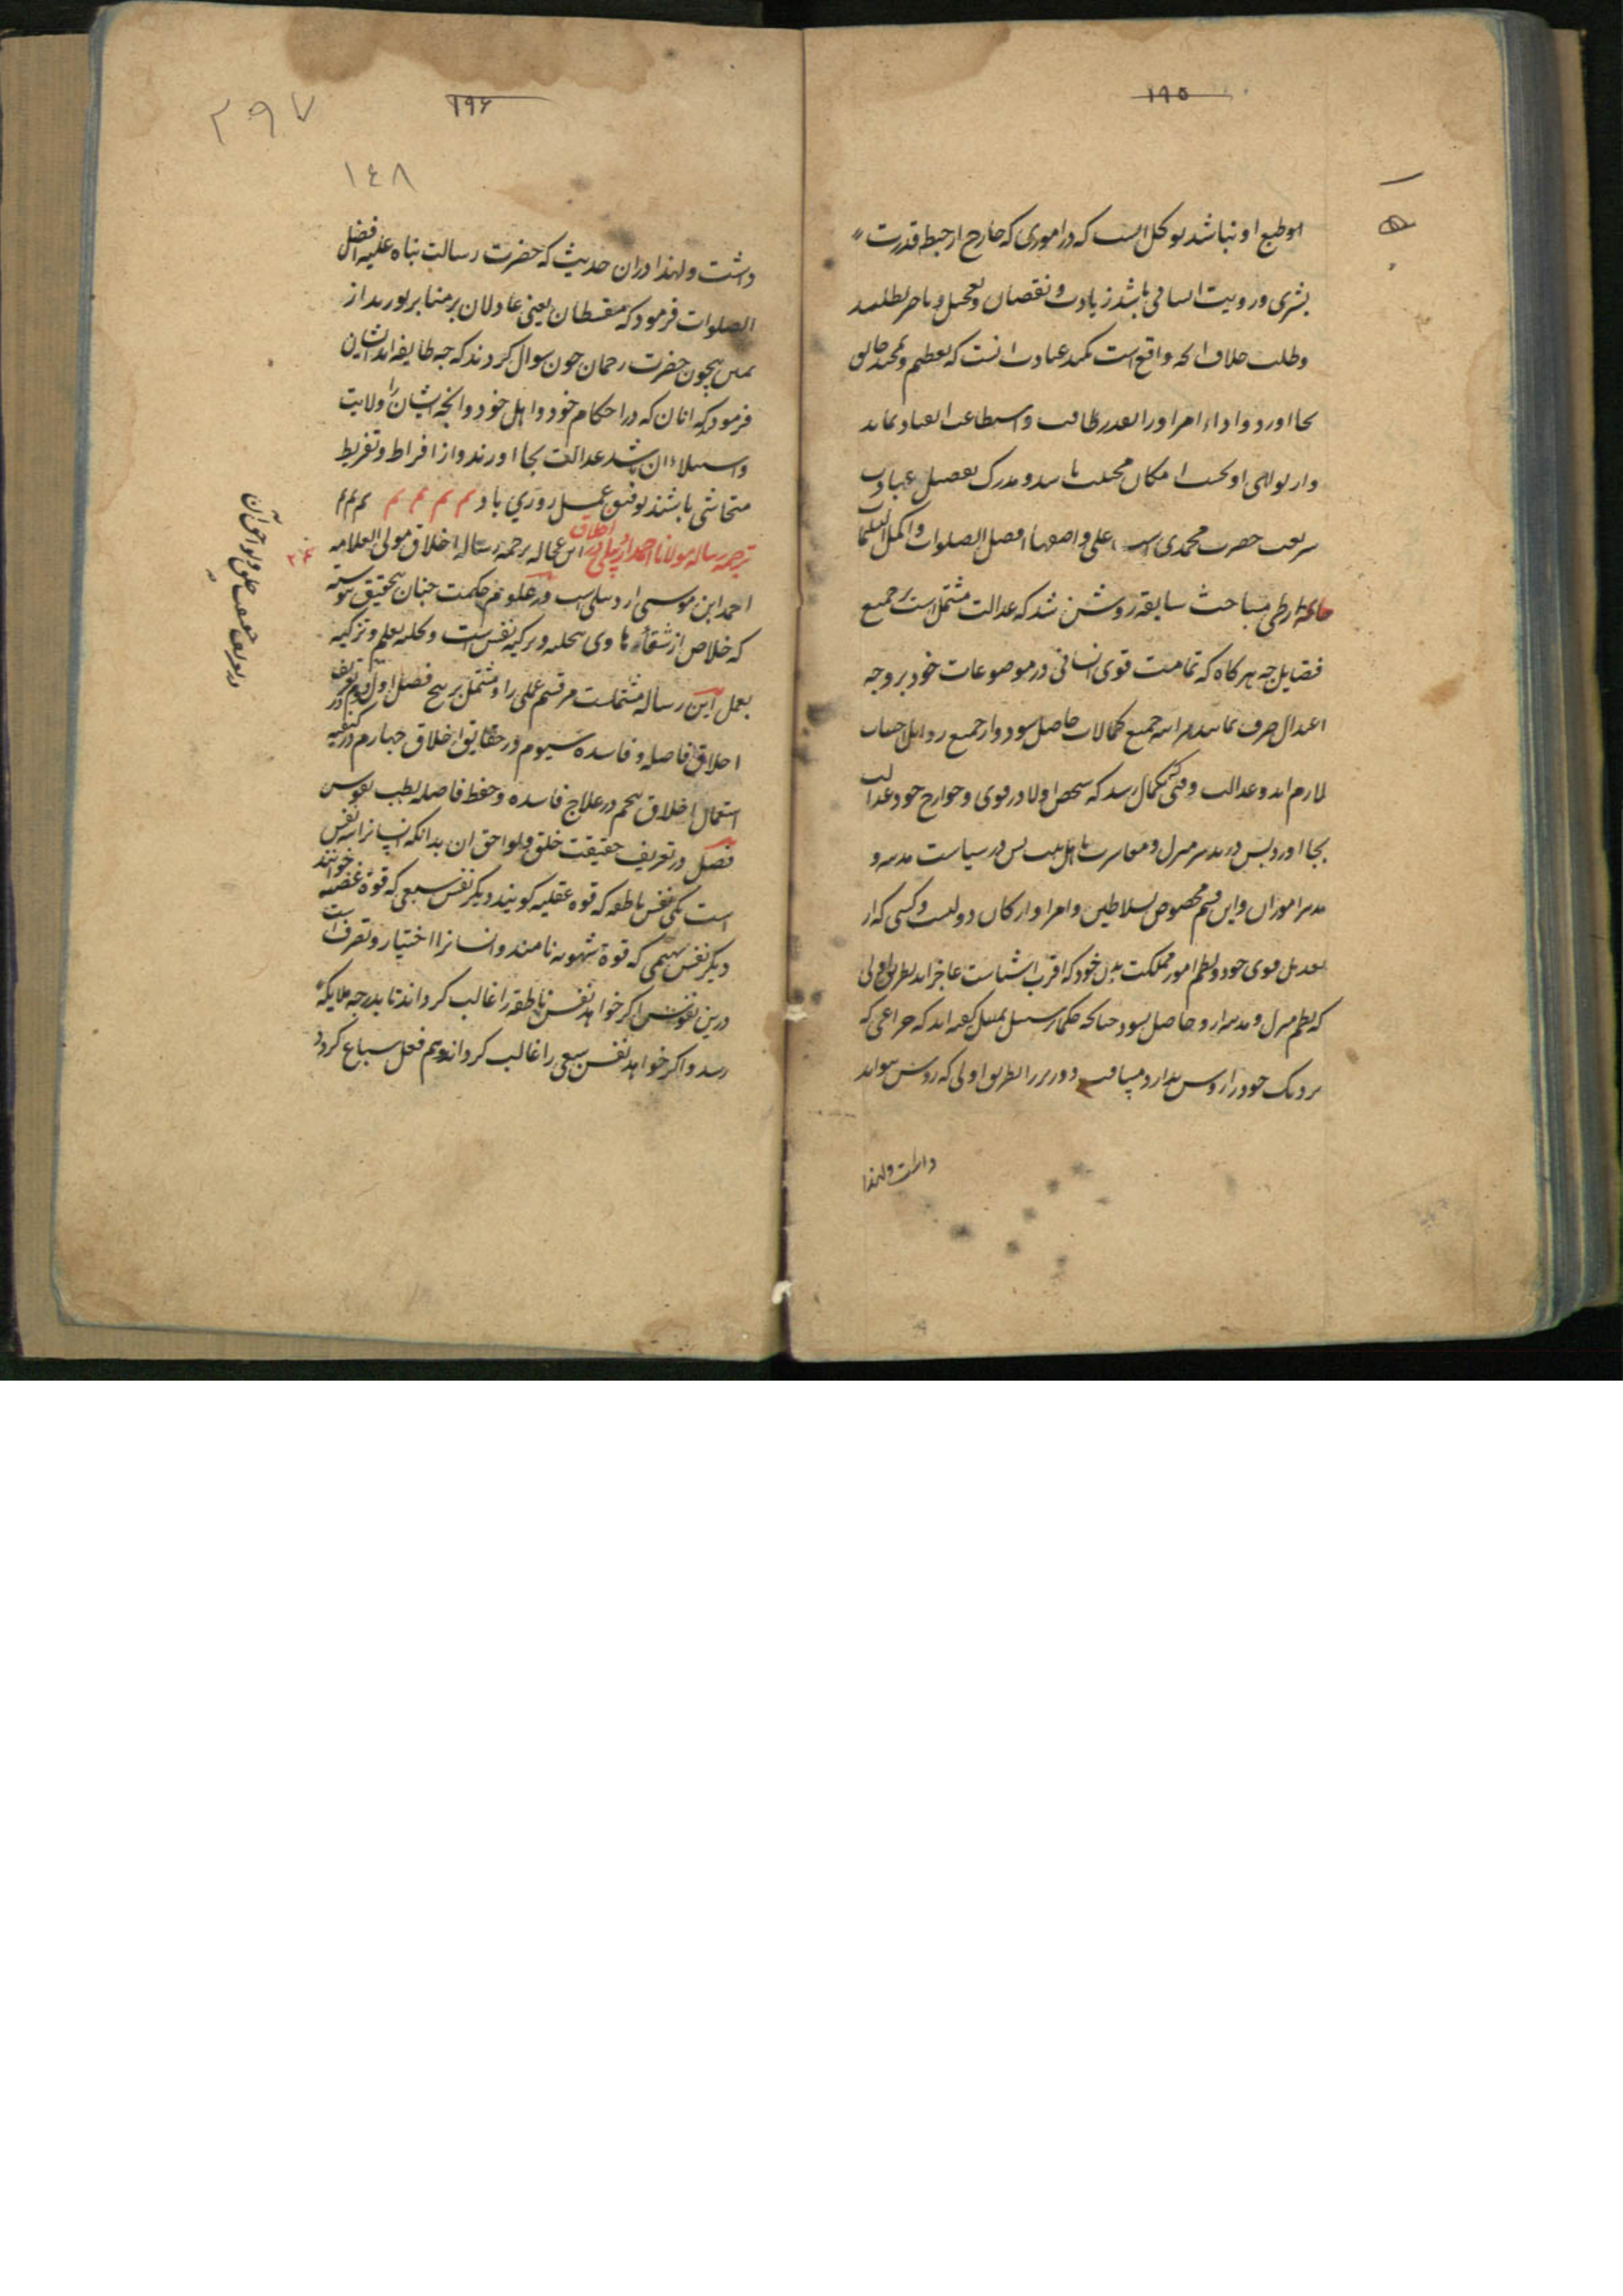 ۱۹۵
او طبع او نباشد توکل انست که در اموری که خارج از حیطه قدرت
بشری و رویت انسانی باشد زیادت و نقصان و تعجیل و تاخیر نطلبد
و طلب خلاف انچه واقع است نکند عبادت انست که تعظیم و تمجید خالق
بجا اورد و اداء امر او را بقدر طاقت و استطاعت انقیاد نماید
و از نواهی او بحسب امکان مجتنب باشد و مدرک تفصیل عبادات
شریعت حضرت محمدی است علی واضعها افضل الصلوات و اکمل التحیات
خاتمه از طی مباحث سابقه روشن شد که عدالت مشتمل است بر جمیع
فضایل چه هرکاه که تمامت قوی انسانی در موضوعات خود بر وجه
اعتدال صرف نمایند هر اینه جمیع کمالات حاصل شود و از جمیع رذایل اجتناب
لازم اید و عدالت وقتی بکمال رسد که شخص اولا در قوی و جوارح خود عدالت
بجا اورد پس در تدبیر منزل و معاشرت با اهل بیت پس در سیاست مدینه و
تدبیر امور ان و این قسم مخصوص بسلاطین و امرا و ارکان دولتست و کسی که از
تعدیل قوی خود و نظم امور مملکت بدن خود که اقرب اشیاست عاجز اید بطریق اولی
که نظم منزل و مدینه از و حاصل نشود چنانچه حکما بر سبیل تمثیل گفته اند که چراغی که
نزدیک خود را روشن ندارد مسافت دورتر را بطریق اولی که روشن نتواند
داشت ولهذا
۱۹۶
۲۹۷
۱٤۸
داشت ولهذا دران حدیث که حضرت رسالت پناه علیه افضل
الصلوات فرمود که مقسطان یعنی عادلان بر منابر نورند از
یمین همچون حضرت رحمان چون سوال کردند که چه طایفه اند ایشان
فرمود که انان که در احکام خود و اهل خود و انچه ایشان را ولایت
و استیلاء ان باشد عدالت بجا اورند و از افراط و تفریط
متحاشی باشند توفیق عمل روزی باد م م م م م م م
ترجمه رساله مولانا احمد اردبیلی در اخلاق این عجاله ترجمه رساله اخلاق مولی العلامه
احمد ابن موسی اردبیلی است در علوم حکمت چنان بتحقیق پیوسته
که خلاص از شقاء باوی بتحلیه و تزکیه نفس است و تحلیه بعلم و تزکیه
بعمل این رساله مشتملست مر قسم عملی را و مشتمل بر پنج فصل اول دویم در تعریف
اخلاق فاضله و فاسده سیوم در حقایق اخلاق چهارم در کیفیه
استعمال اخلاق پنجم در علاج فاسده و حفظ فاضله بطب نفوس
فصل در تعریف حقیقت خلق و لواحق ان بدانکه انسانرا سه نفس
است یکی نفس ناطقه که قوه عقلیه کویند دیکر نفس سبعی که قوة غضبیه خوانند
دیکر نفس بهیمی که قوة شهویه نامند و انسانرا اختیار و تصرف است
درین نفوس اکر خواهد نفس ناطقه را غالب کرداند تا بدرجه ملایکه
رسد و اکر خواهد نفس سبعی را غالب کرداند و هم فعل سباع کردد
در تعریف حقیقت خلق و لواحق آن